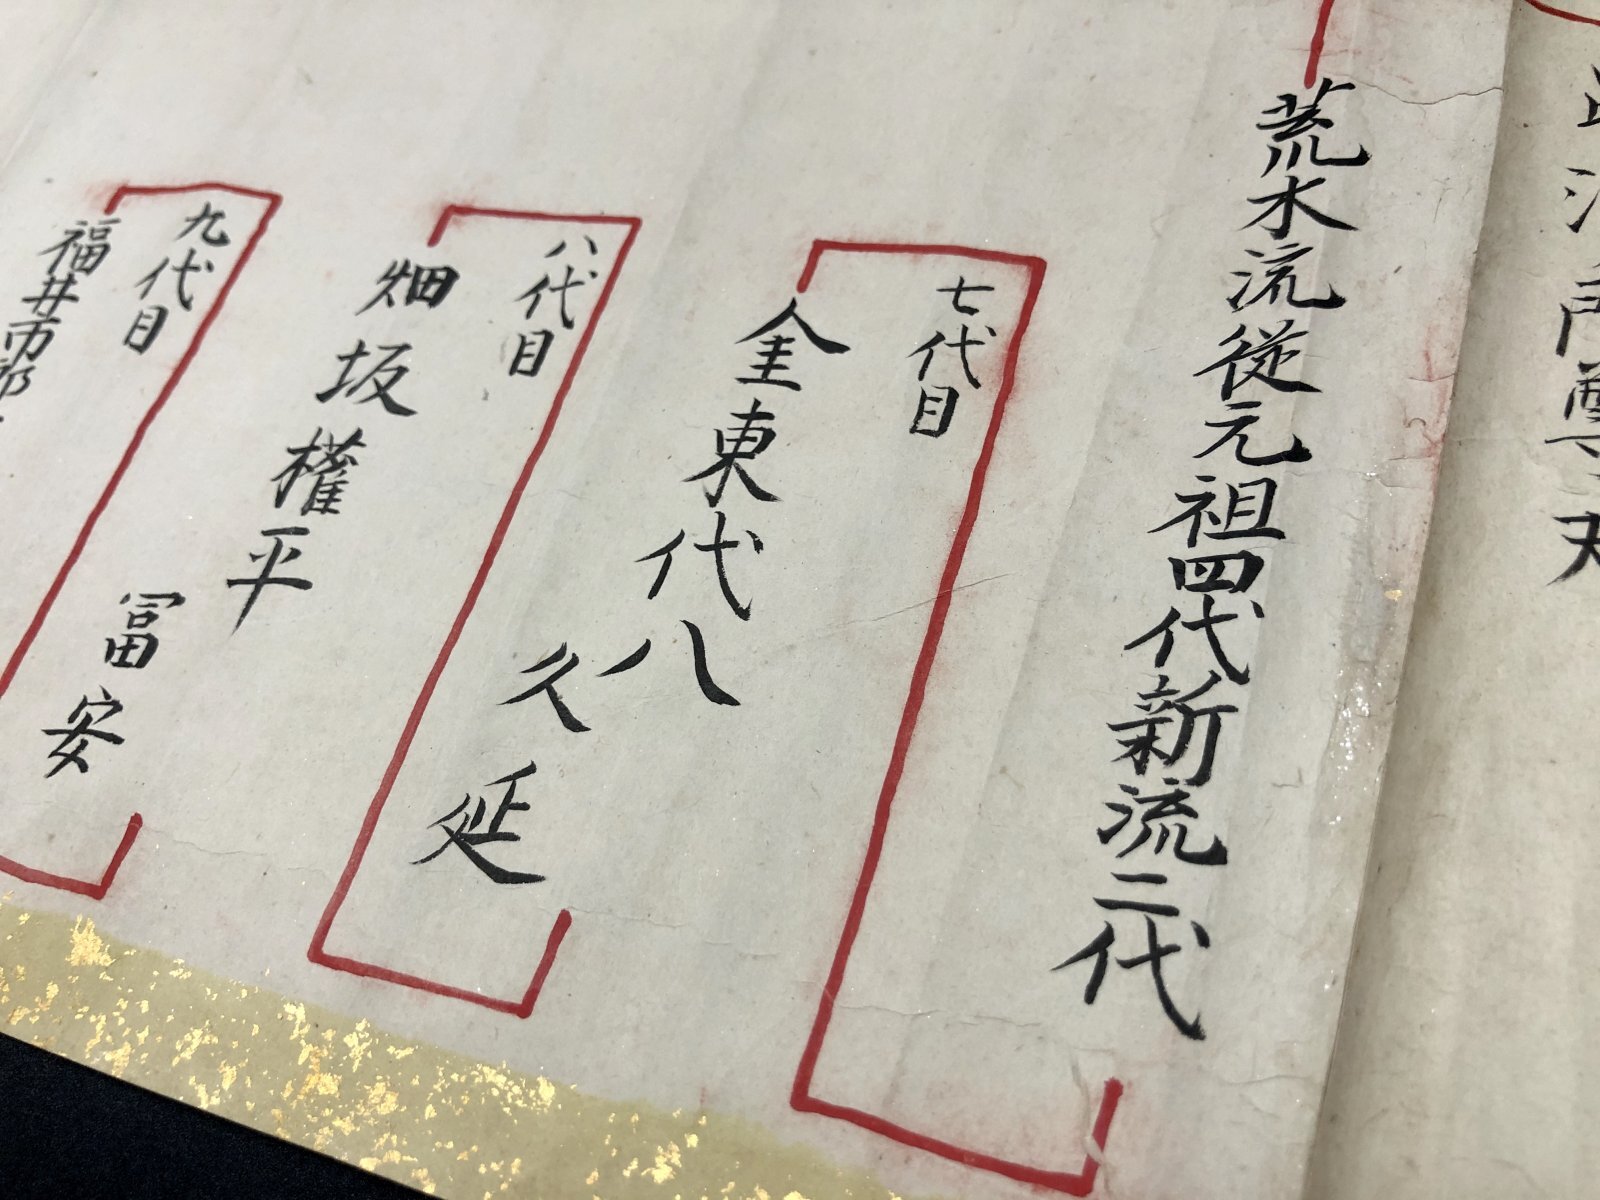 荒水流従元祖四代新流二代
七代目
金東代八
久延
八代目
畑坂權平
冨安
九代目
福井市郎